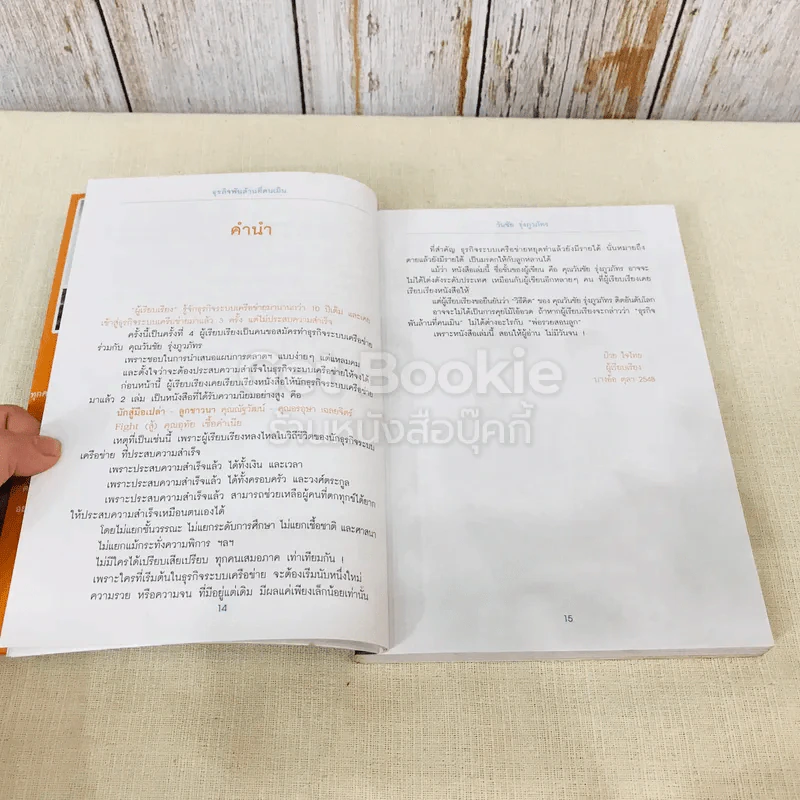 ธุรกิจพันล้านที่คนเมิน
คำนำ
"ผู้เรียบเรียง" รู้จักธุรกิจระบบเครือข่ายมานานกว่า 10 ปีเต็ม และเคย
เข้าสู่ธุรกิจระบบเครือข่ายมาแล้ว 3 ครั้ง แต่ไม่ประสบความสำเร็จ
ครั้งนี้เป็นครั้งที่ 4 ผู้เรียบเรียงเป็นคนขอสมัครทำธุรกิจระบบเครือข่าย
ร่วมกับ คุณวันชัย รุ่งภูวภัทร
เพราะชอบในการนำเสนอแผนการตลาดฯ แบบง่ายๆ แต่แหลมคม
และตั้งใจว่าจะต้องประสบความสำเร็จในธุรกิจระบบเครือข่ายให้จงได้
ก่อนหน้านี้ ผู้เรียบเรียงเคยเรียบเรียงหนังสือให้นักธุรกิจระบบเครือข่าย
มาแล้ว 2 เล่ม เป็นหนังสือที่ได้รับความนิยมอย่างสูง คือ
นักสู้มือเปล่า - ลูกชาวนา คุณณัฐวัฒน์ -
Fight (สู้) คุณอุทัย
เหตุที่เป็นเช่นนี้ เพราะผู้เรียบเรียงหลงใหลในวิถีชีวิตของนักธุรกิจระบบ
เครือข่าย ที่ประสบความสำเร็จ
เพราะประสบความสำเร็จแล้ว ได้ทั้งเงิน และเวลา
เพราะประสบความสำเร็จแล้ว ได้ทั้งครอบครัว และวงศ์ตระกูล
เพราะประสบความสำเร็จแล้ว สามารถช่วยเหลือผู้คนที่ตกทุกข์ได้ยาก
ให้ประสบความสำเร็จเหมือนตนเองได้
โดยไม่แยกชั้นวรรณะ ไม่แยกระดับการศึกษา ไม่แยกเชื้อชาติ และศาสนา
ไม่แยกแม้กระทั่งความพิการ ฯลฯ
ไม่มีใครได้เปรียบเสียเปรียบ ทุกคนเสมอภาค เท่าเทียมกัน !
เพราะใครที่เริ่มต้นในธุรกิจระบบเครือข่าย จะต้องเริ่มนับหนึ่งใหม่
ความรวย หรือความจน ที่มีอยู่แต่เดิม มีผลแค่เพียงเล็กน้อยเท่านั้น
14
วันชัย รุ่งภูวภัทร
ที่สำคัญ ธุรกิจระบบเครือข่ายหยุดทำแล้วยังมีรายได้ นั่นหมายถึง
ตายแล้วยังมีรายได้ เป็นมรดกให้กับลูกหลานได้
แม้ว่า หนังสือเล่มนี้ ชื่อชั้นของผู้เขียน คือ คุณวันชัย รุ่งภูวภัทร อาจจะ
ไม่ได้โด่งดังระดับประเทศ เหมือนกับผู้เขียนอีกหลายๆ คน ที่ผู้เรียบเรียงเคย
เรียบเรียงหนังสือให้
แต่ผู้เรียบเรียงขอยืนยันว่า "วิธีคิด" ของ คุณวันชัย รุ่งภูวภัทร ติดอันดับโลก
อาจจะไม่ได้เป็นการคุยโม้โอ้อวด ถ้าหากผู้เรียบเรียงจะกล่าวว่า "ธุรกิจ
พันล้านที่คนเมิน" ไม่ได้ต่างอะไรกับ "พ่อรวยสอนลูก"
เพราะหนังสือเล่มนี้ สอนให้ผู้อ่าน ไม่มีวันจน !
ป้าย ใจไทย
ผู้เรียบเรียง
ตุลา 2548
15
Get Bookie
ร้านหนังสือบุ๊คกี้